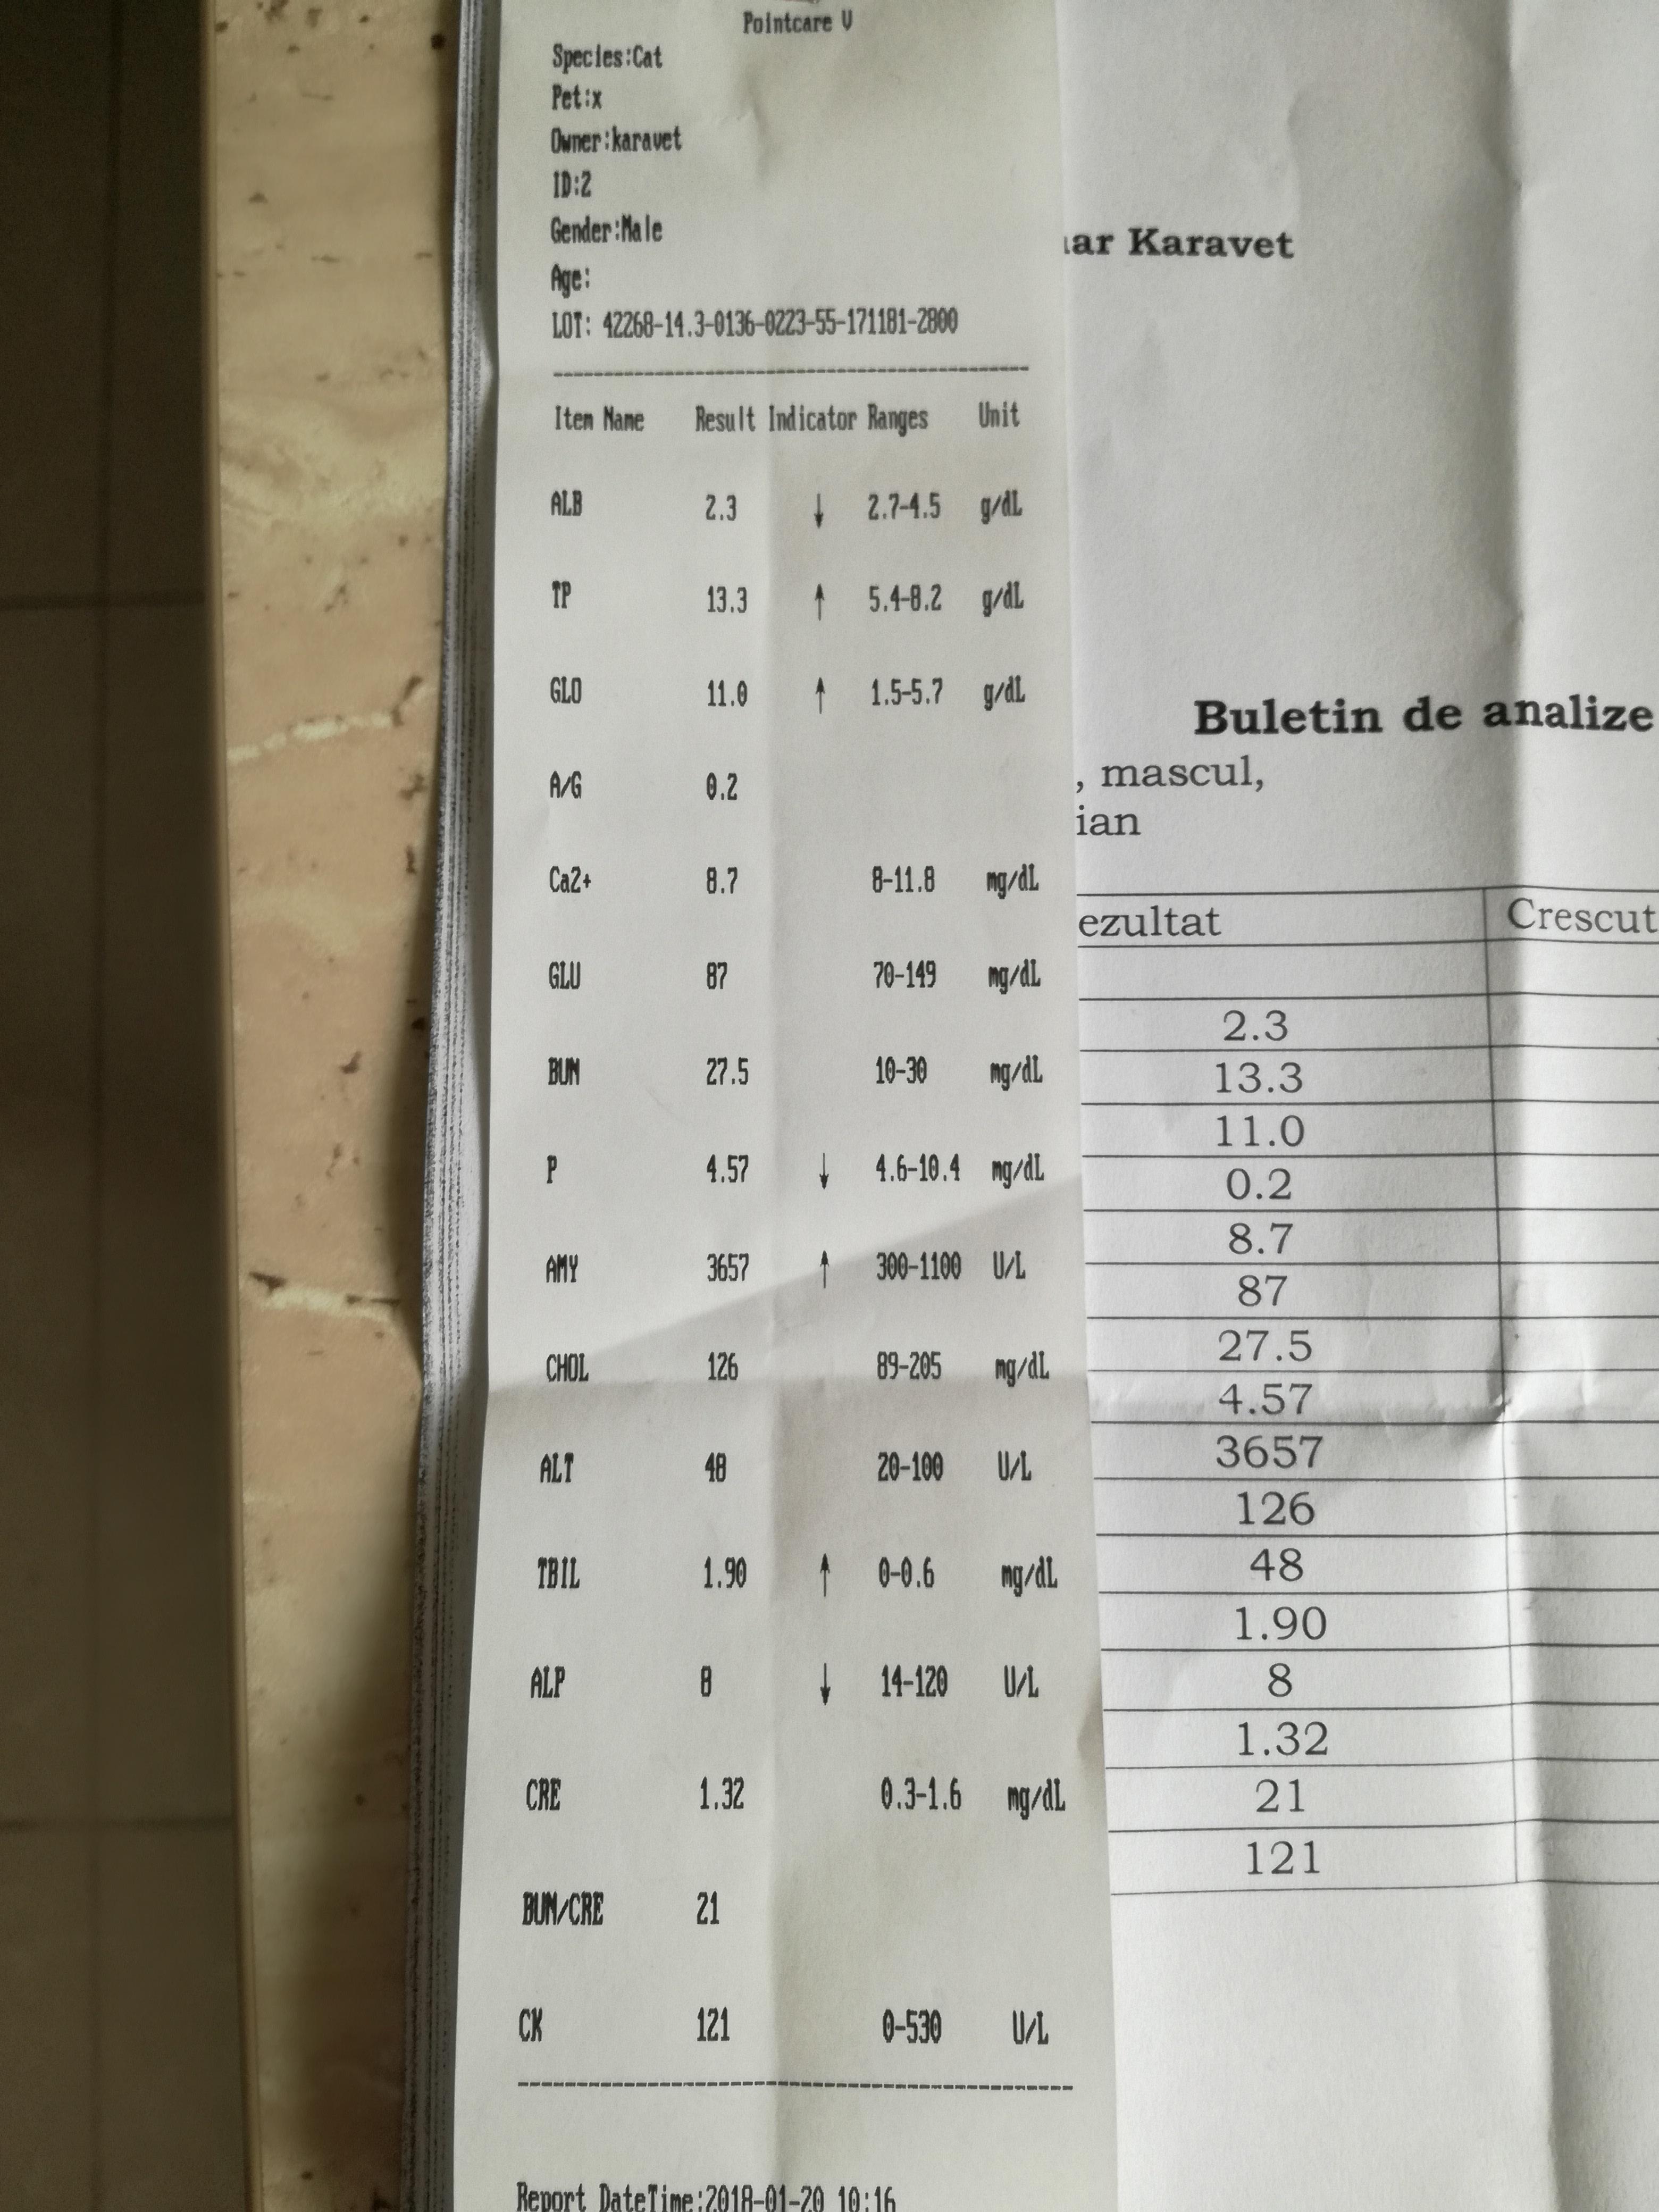 Pointcare V
Species:Cat
Pet:x
Owner:karavet
ID:2
Gender:Male
Age:
LOT: 42268-14.3-0136-0223-55-171181-2800
Item Name Result Indicator Ranges Unit
ALB 2.3 ↓ 2.7-4.5 g/dL
TP 13.3 ↑ 5.4-8.2 g/dL
GLO 11.0 ↑ 1.5-5.7 g/dL
A/G 0.2
Ca2+ 8.7 8-11.8 mg/dL
GLU 87 70-149 mg/dL
BUN 27.5 10-30 mg/dL
P 4.57 ↓ 4.6-10.4 mg/dL
AMY 3657 ↑ 300-1100 U/L
CHOL 126 89-205 mg/dL
ALT 48 20-100 U/L
TBIL 1.90 ↑ 0-0.6 mg/dL
ALP 8 ↓ 14-120 U/L
CRE 1.32 0.3-1.6 mg/dL
BUN/CRE 21
CK 121 0-530 U/L
Report DateTime:2018-01-20 10:16
ar Karavet
Buletin de analize
, mascul,
ian
ezultat Crescut
2.3
13.3
11.0
0.2
8.7
87
27.5
4.57
3657
126
48
1.90
8
1.32
21
121